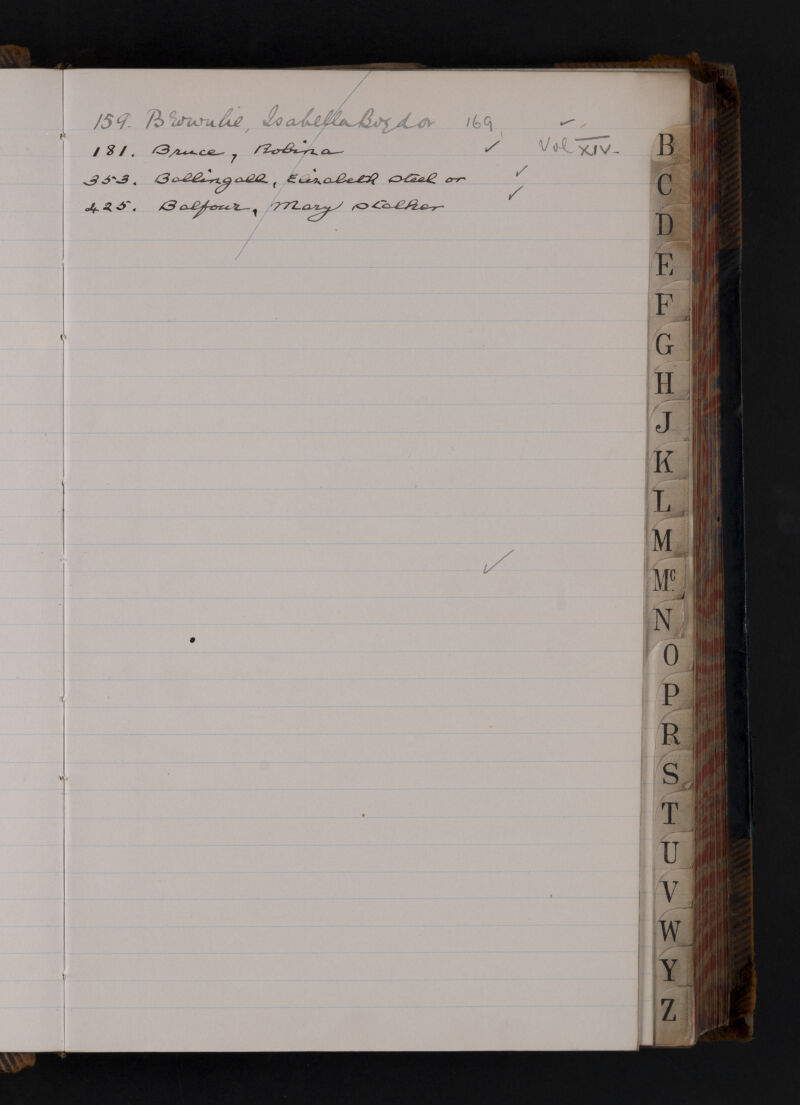 159. Brownlie, Isabella Boyd or 169
181. Bruce, Robina Vol XIV.
353. Ballingall, Elizabeth Steel or
425. Balfour, Mary Stalker
B
C
D
E
F
G
H
J
K
L
M
Mc.
N
O
P
R
S
T
U
V
W
Y
Z